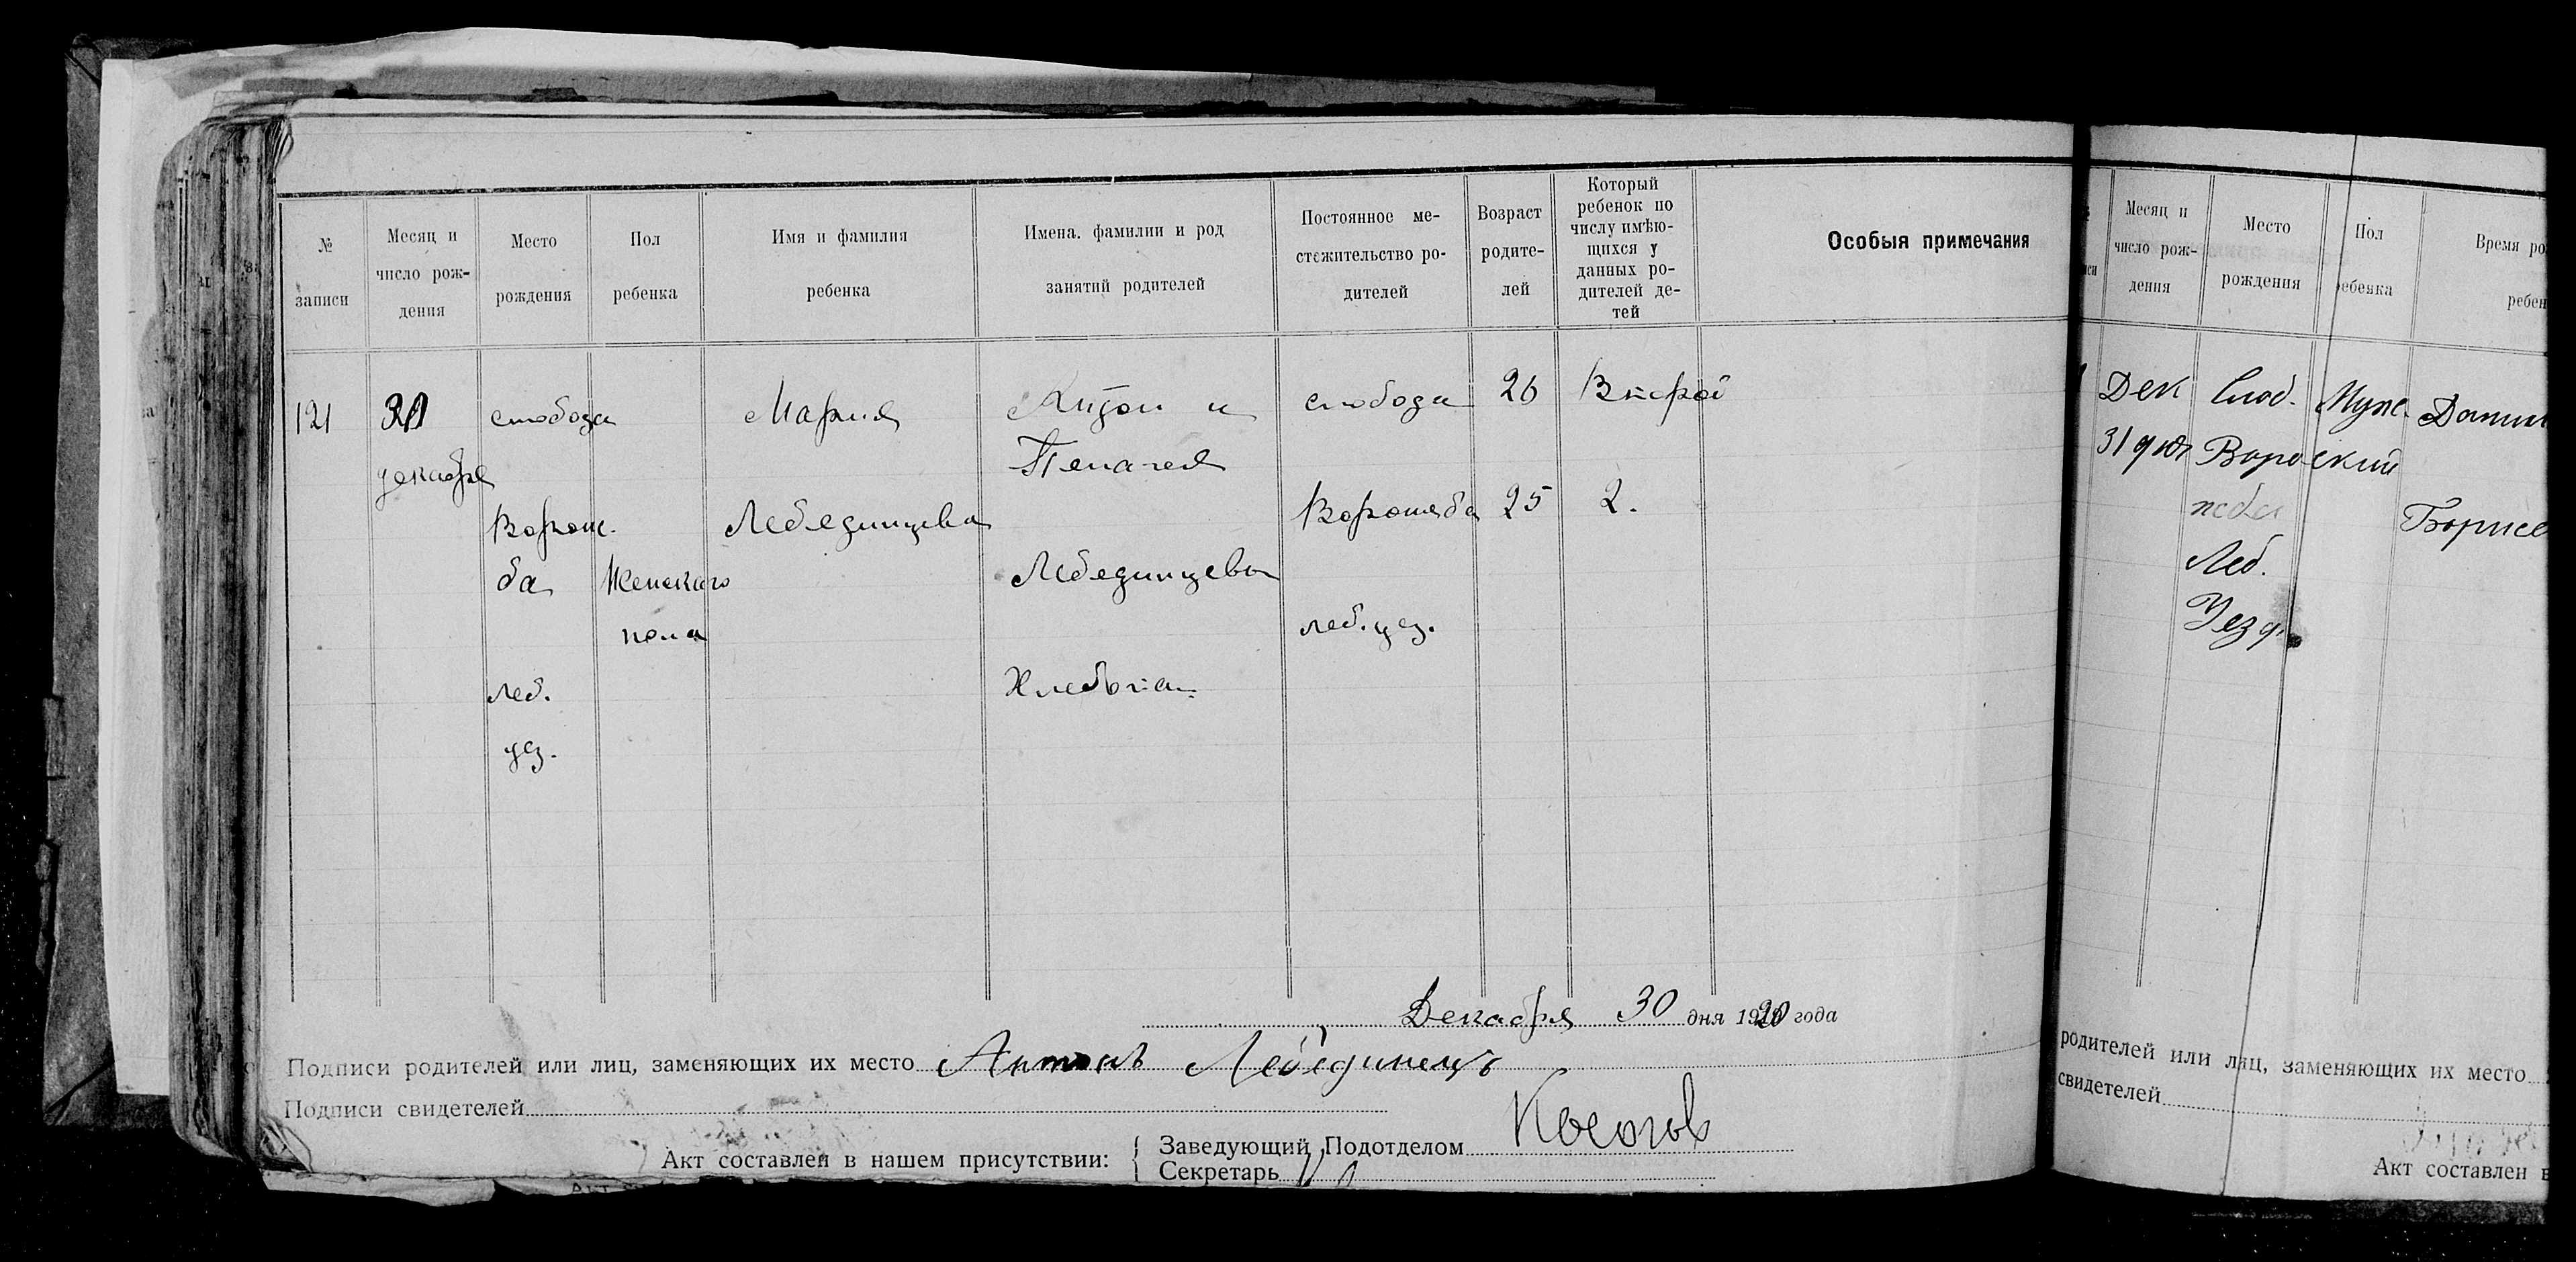 № записи
Месяц и число рождения
Место рождения
Пол ребенка
Имя и фамилия ребенка
Имена. фамилии и род занятий родителей
Постоянное местежительство родителей
Возраст родителей
Который ребенок по числу имѣющихся у данных родителей детей
Особыя примечания
121
декабря
слобода
Ворож.
ба
леб.
уез.
Женскаго
пола
Мария
Лебединцева
Антон и
Пелагея
Лебединцевы
слобода
Ворожба
леб. уез.
26
25
Второй
2.
Декабря 30 дня 1920 года
Подписи родителей или лиц, заменяющих их место Антонъ Лебединецъ
Подписи свидетелей
Акт составлен в нашем присутствии:
Заведующий Подотделом
Секретарь
Месяц и
число рож-
дения
Место
рождения
Пол
ребенка
Время ро
ребен
Дек
31 дня
Слоб.
Воро
жба
Леб.
Уезда
Мужской
Борисе
родителей или лиц, заменяющих их место
свидетелей
Акт составлен в